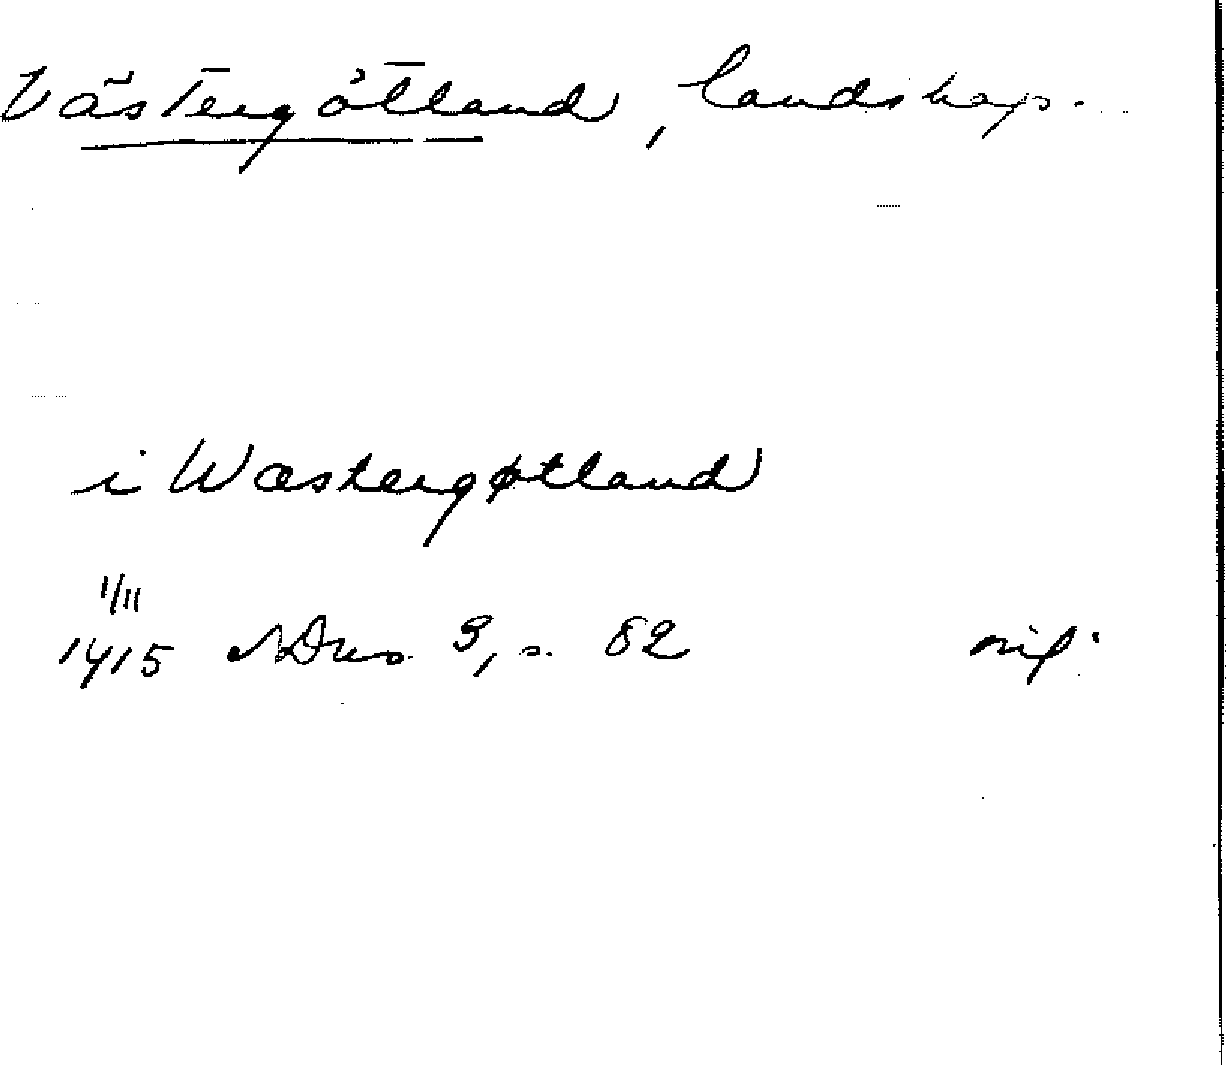 Västergötland, landskap.
i Wæstergøtland
1/11
1415 NDns 3, s. 82 orig.